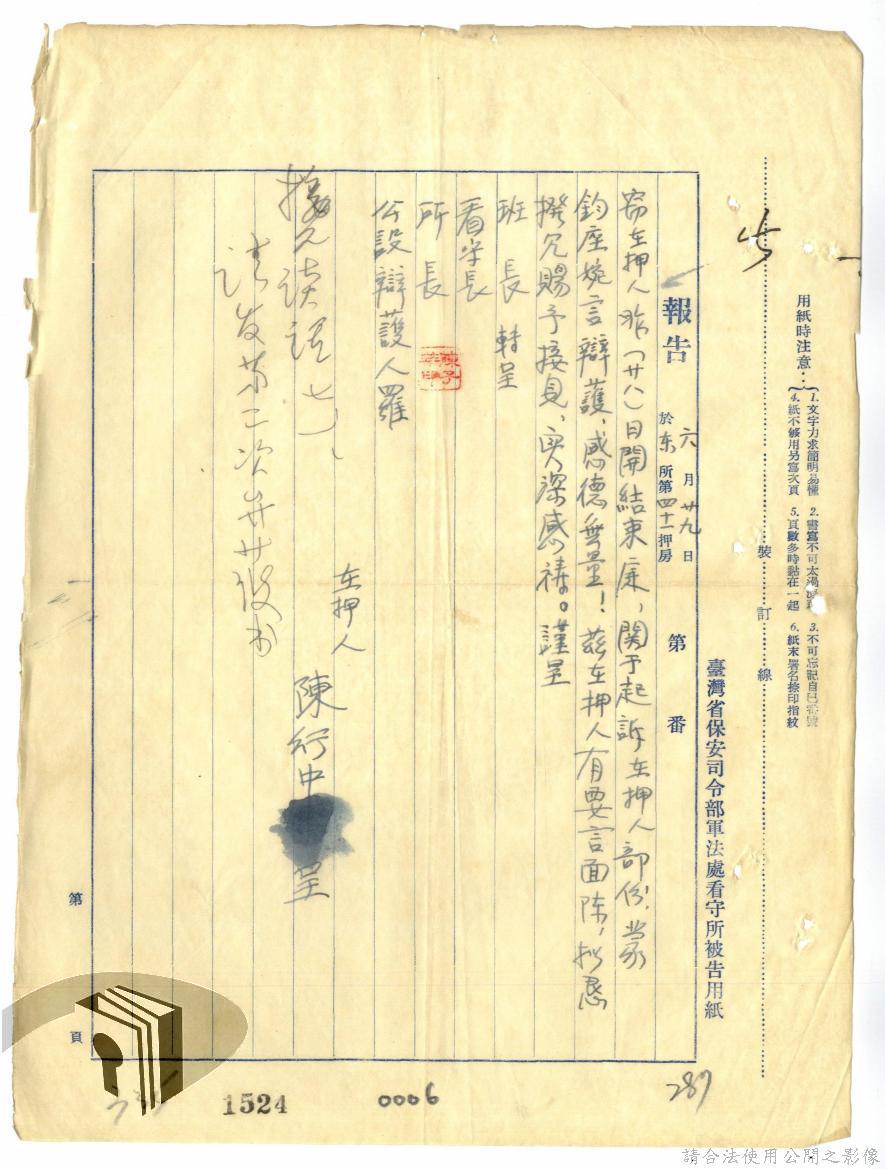 用紙時注意：
1.文字力求簡明易懂 2.書寫不可太潦草 3.不可忘記自己番號
4.紙不够用另寫次頁 5.頁數多時黏在一起 6.紙末署名捺印指紋
裝訂線
臺灣省保安司令部軍法處看守所被告用紙
報告 六月廿九日 第番
於东所第四十一押房
窃在押人昨(廿八)日開結束庭，關于起訴在押人部份，蒙
鈞座婉言辯護，感德無量！兹在押人有要言面陈，懇
撥冗賜予接見，實深感禱。謹呈
班長 轉呈
看守長
所長
公設辯護人羅
在押人 陳行中 呈
第 頁
1524
0006
287
請合法使用公開之影像